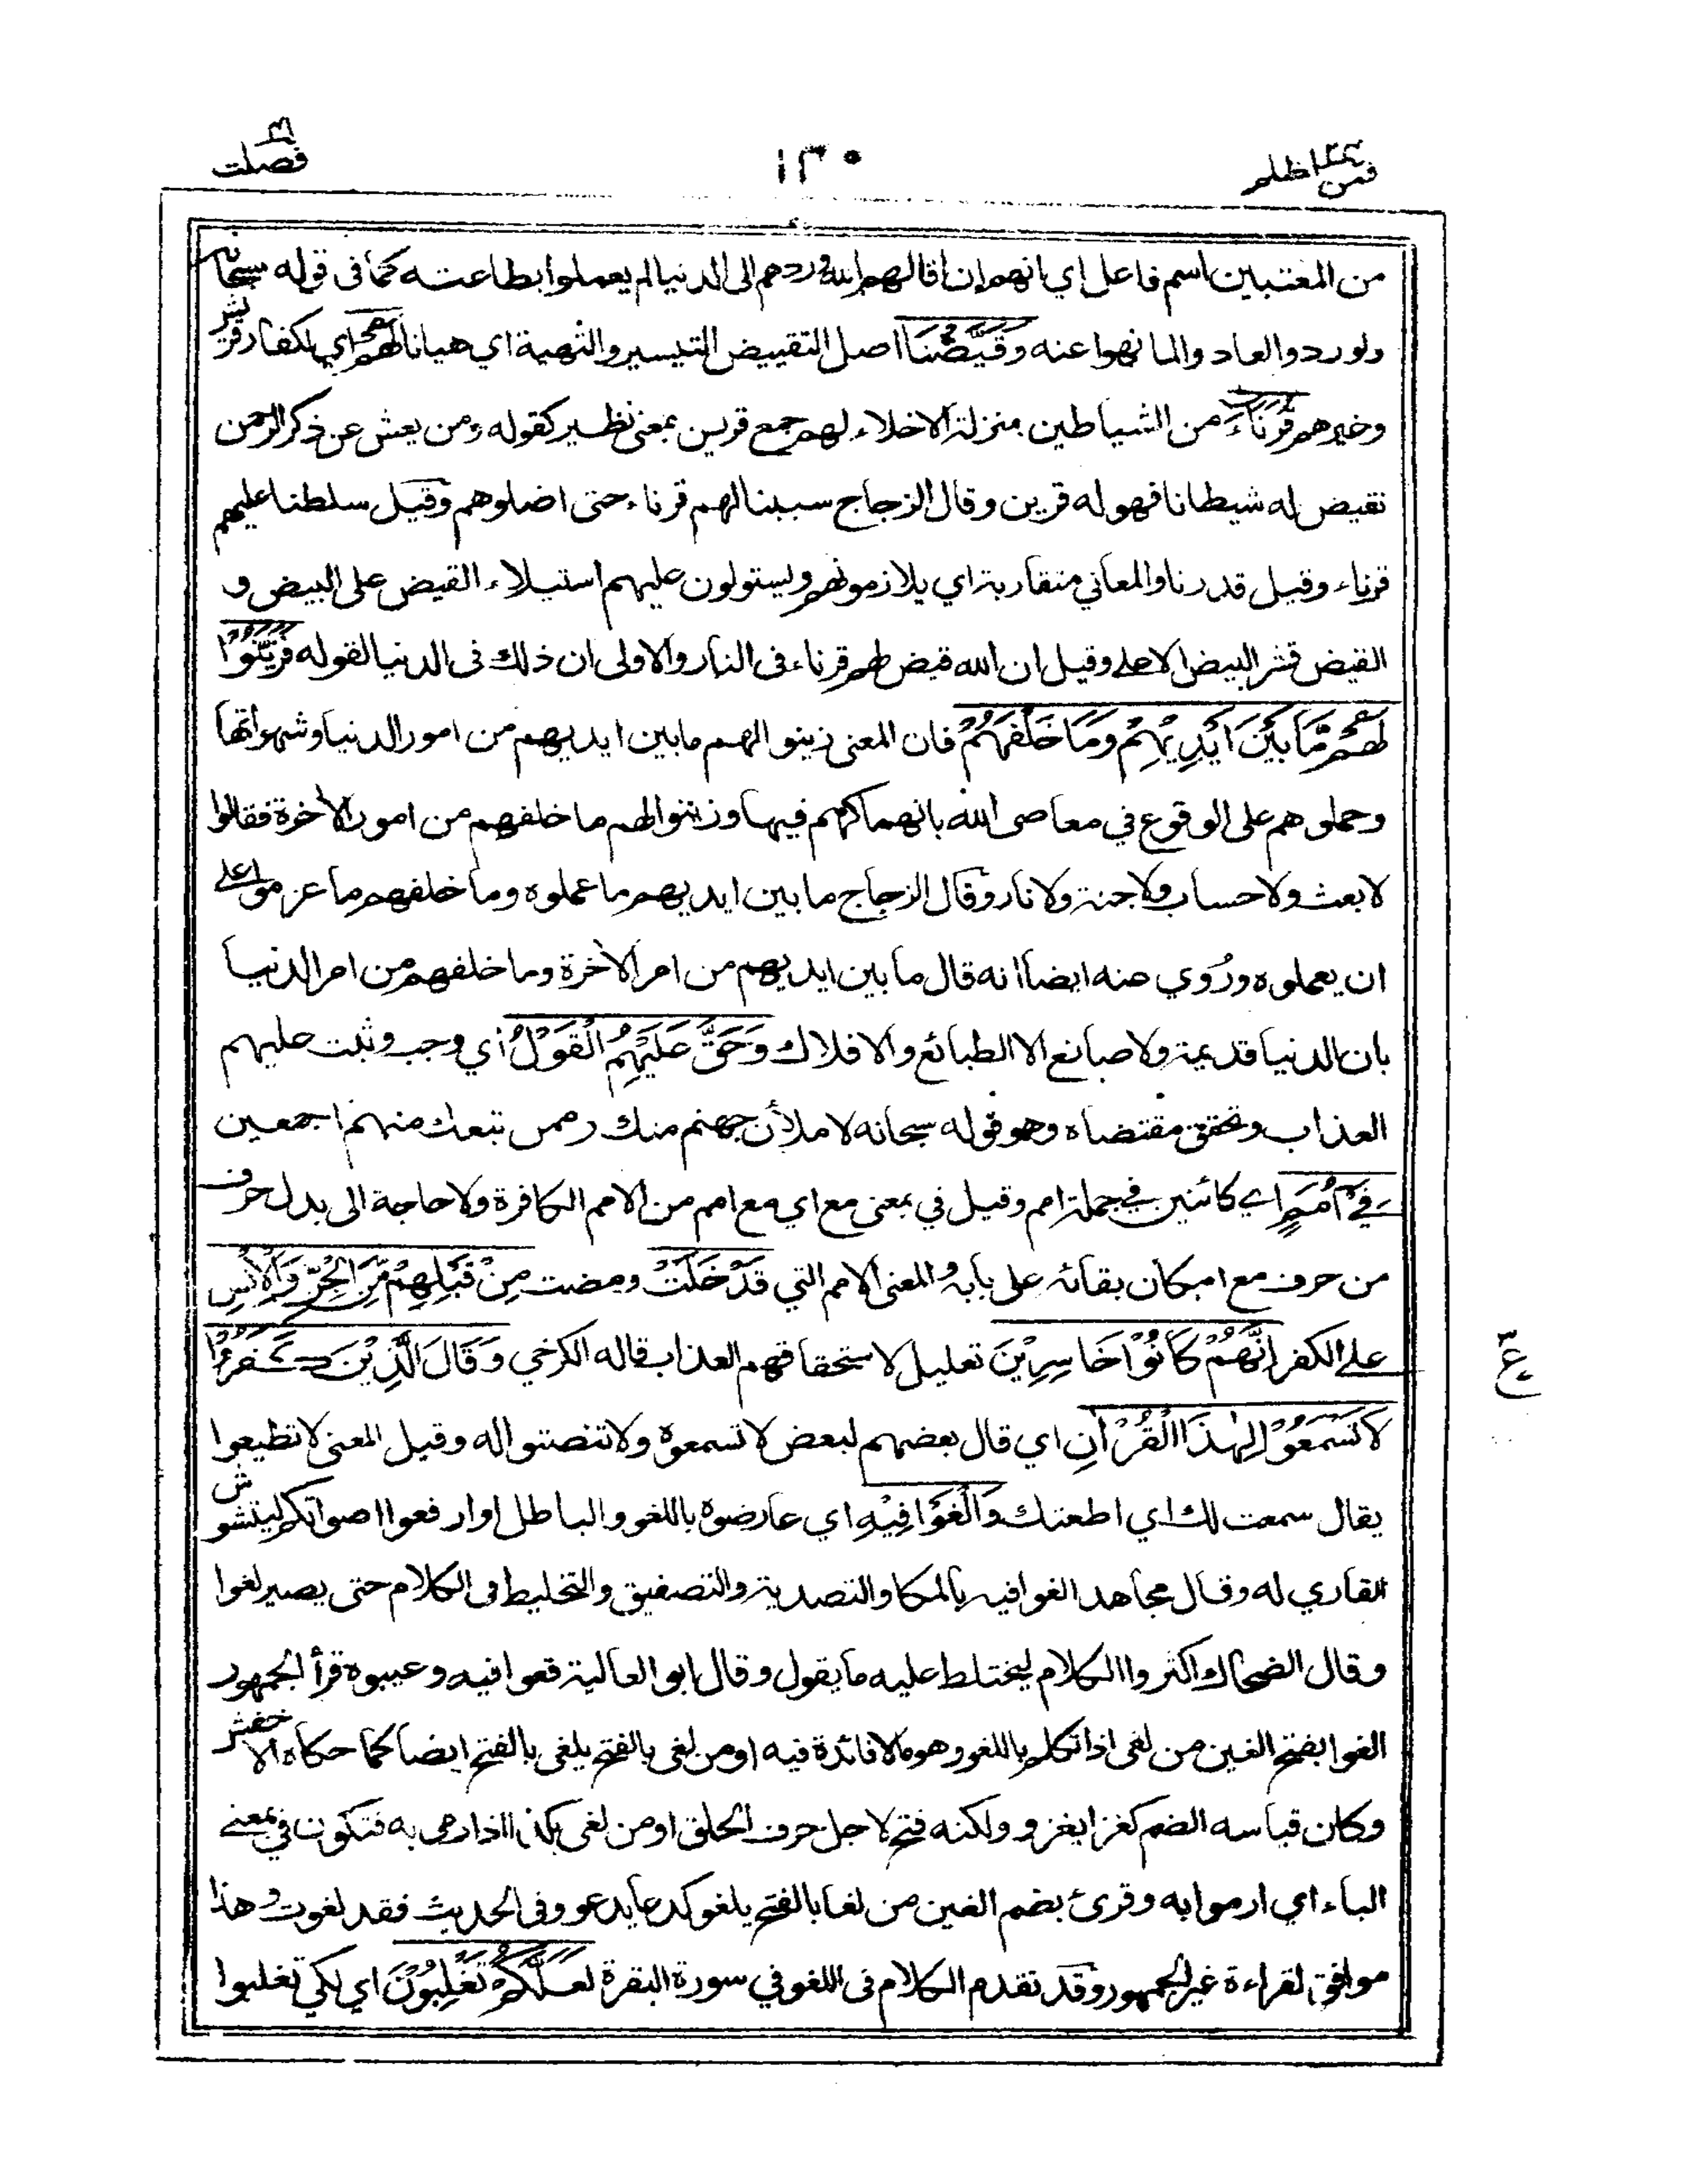 فمن اظلم ٢٤
١٣٠
فصلت ٤١
من المعتبين اسم فاعل اي بانهم ان اقالهم الله وردهم الى الدنيا لم يعملوا بطاعته كما في قوله سبحانه
ولو ردوا لعادوا لما نهوا عنه وَقَيَّضْنَا اصل التقييض التيسير والتهيئة اي هيانا لَهُمْ اي لكفار قريش
وغيرهم قُرَنَاءَ من الشياطين بمنزلة الاخلاء لهم جمع قرين بمعنى نظير كقوله ومن يعش عن ذكر الرحمن
نقيض له شيطانا فهو له قرين وقال الزجاج سببنا لهم قرناء حتى اضلوهم وقيل سلطنا عليهم
قرناء وقيل قدرنا والمعاني متقاربة اي يلازمونهم ويستولون عليهم استيلاء القيض على البيض و
القيض قشر البيض الاعلى وقيل ان الله قيض لهم قرناء في النار والاولى ان ذلك في الدنيا لقوله فَزَيَّنُوْا
لَهُمْ مَّا بَيْنَ اَيْدِيْهِمْ وَمَا خَلْفَهُمْ فان المعنى زينوا لهم ما بين ايديهم من امور الدنيا وشهواتها
وحملوهم على الوقوع في معاصى الله بانهماكهم فيها وزينوا لهم ما خلفهم من امور الاٰخرة فقالوا
لا بعث ولا حساب ولا جنة ولا نار وقال الزجاج ما بين ايديهم ما عملوه وما خلفهم ما عزموا على
ان يعملوه ورُوي عنه ايضا انه قال ما بين ايديهم من امر الاٰخرة وما خلفهم من امر الدنيا
بان الدنيا قديمة ولا صانع الا الطبائع والافلاك وَحَقَّ عَلَيْهِمُ الْقَوْلُ أي وجب وثبت عليهم
العذاب وتحقق مقتضاه وهو قوله سبحانه لاملأن جهنم منك وممن تبعك منهم اجمعين
فِيْ اُمَمٍ اي كائنين في جملة امم وقيل في بمعنى مع اي مع امم من الامم الكافرة ولا حاجة الى بدل حرف
من حرف مع امكان بقائه على بابه والمعنى الامم التي قَدْ خَلَتْ ومضت مِنْ قَبْلِهِمْ مِّنَ الْجِنِّ وَالْاِنْسِ
على الكفر اِنَّهُمْ كَانُوْا خَاسِرِيْنَ تعليل لاستحقاقهم العذاب قاله الكرخي وَقَالَ الَّذِيْنَ كَفَرُوْا
ع ٣
لَا تَسْمَعُوْا لِهٰذَا الْقُرْاٰنِ اي قال بعضهم لبعض لا تسمعوه ولا تنصتوا له وقيل المعنى لا تطيعوا
يقال سمعت لك اي اطعتك وَالْغَوْا فِيْهِ اي عارضوه باللغو والباطل او ارفعوا اصواتكم ليتشوش
القاري له وقال مجاهد الغوا فيه بالمكا والتصدية والتصفيق والتخليط في الكلام حتى يصير لغوا
وقال الضحاك اكثروا الكلام ليختلط عليه ما يقول وقال ابو العالية قعوا فيه وعيبوه قرأ الجمهور
الغوا بفتح الغين من لغى اذا تكلم باللغو وهو ما لا فائدة فيه او من لغى بالفتح يلغى بالفتح ايضا كما حكاه الاخفش
وكان قياسه الضم كغزا يغزو ولكنه فتح لاجل حرف الحلق او من لغى بكذا اذا رمى به فتكون في بمعنى
الباء اي ارموا به وقرئ بضم الغين من لغا بالفتح يلغو كدعا يدعو وفي الحديث فقد لغوت وهذا
موافق لقراءة غير الجمهور وقد تقدم الكلام في اللغو في سورة البقرة لَعَلَّكُمْ تَغْلِبُوْنَ اي لكي تغلبوا